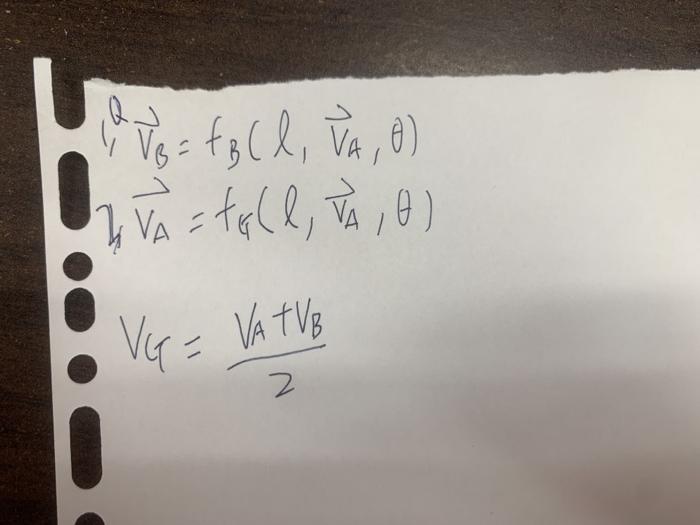 1, V⃗B = fB(l, V⃗A, θ)
2, V⃗A = fG(l, V⃗A, θ)
VG = VA+VB / 2